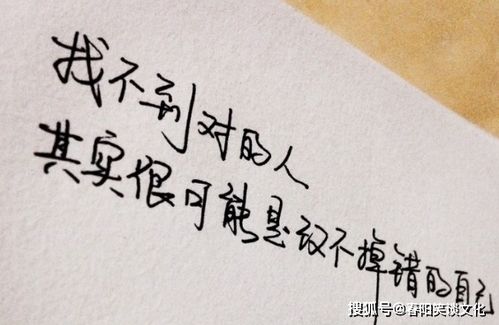 找不到对的人
其实很可能是改不掉错的自己
搜狐号@春阳笑谈文化